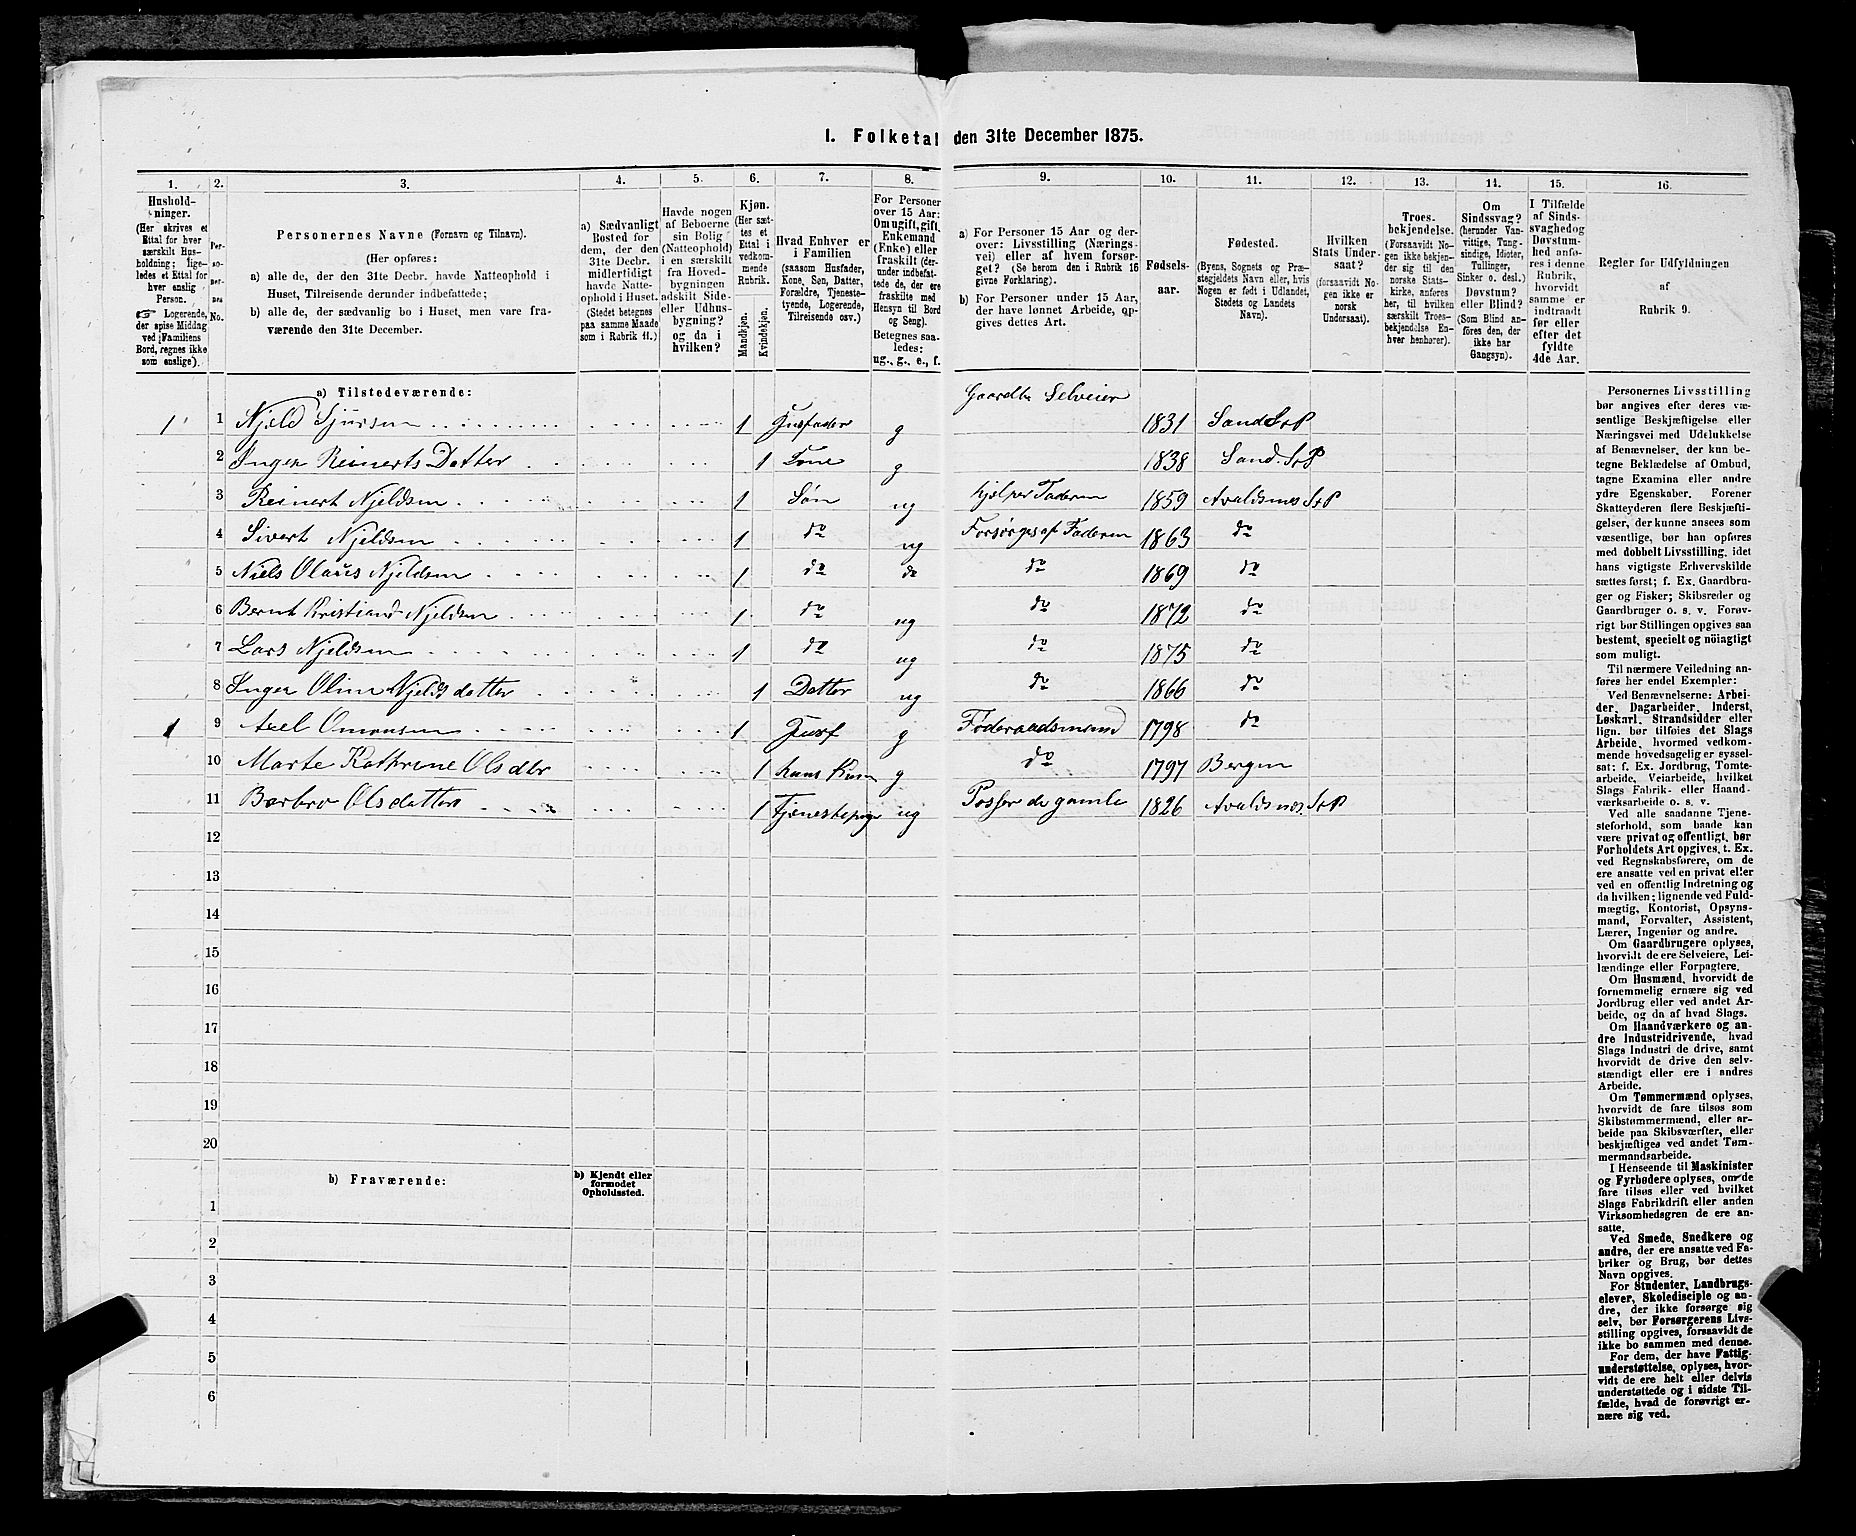 I. Folketal den 31te December 1875.
1. 2. 3. 4. 5. 6. 7. 8. 9. 10. 11. 12. 13. 14. 15. 16.
Hushold-
ninger.
(Her skrives et
Ettal for hver
særskilt Hus-
holdning; lige-
ledes et Ettal for
hver enslig
Person.
☞ Logerende,
der spise Middag
ved Familiens
Bord, regnes ikke
som enslige).
Per-
so-
ner-
nes
No.
Personernes Navne (Fornavn og Tilnavn).
(Her opføres:
a) alle de, der den 31te Decbr. havde Natteophold i
Huset, Tilreisende derunder indbefattede;
b) alle de, der sædvanlig bo i Huset, men vare fra-
værende den 31te December.
a) Sædvanligt
Bosted for
dem, der den
31te Decbr.
midlertidigt
havde Natte-
ophold i Huset.
(Stedet betegnes
paa samme Maade
som i Rubrik 11.)
Havde nogen
af Beboerne
sin Bolig
(Natteophold)
i en særskilt
fra Hoved-
bygningen
adskilt Side-
eller Udhus-
bygning?
og da i
hvilken?
Kjøn.
(Her sæt-
tes et
Ettal i
vedkom-
mende
Rubrik.
Mandkjøn.
Kvindekjøn.
Hvad Enhver er
i Familien
(saasom Husfader,
Kone, Søn, Datter,
Forældre, Tjeneste-
tyende, Logerende,
Tilreisende osv.)
For Personer
over 15 Aar:
Om ugift, gift,
Enkemand
(Enke) eller
fraskilt (der-
under indbefat-
tede de, der ere
fraskilte med
Hensyn til Bord
og Seng).
Betegnes saa-
ledes:
ug., g., e., f.
a) For Personer 15 Aar og der-
over: Livsstilling (Nærings-
vei) eller af hvem forsør-
get? (Se herom den i Rubrik 16
givne Forklaring).
b) For Personer under 15 Aar,
der have lønnet Arbeide, op-
gives dettes Art.
Fødsels-
aar.
Fødested.
(Byens, Sognets og Præ-
stegjeldets Navn eller, hvis
Nogen er født i Udlandet,
Stedets og Landets
Navn).
Hvilken
Stats Under-
saat?
(forsaavidt No-
gen ikke er
norsk
Undersaat).
Troes-
bekjendelse.
(Forsaavidt No-
gen ikke bekjen-
der sig til den
norske Stats-
kirke, anføres
her, til hvilken
særskilt Troes-
bekjendelse En-
hver henhører).
Om
Sindssvag?
(herunder Van-
vittige, Tung-
sindige, Idioter,
Tullinger,
Sinker o. desl.)
Døvstum?
eller Blind?
(Som Blind an-
føres den, der
ikke har
Gangsyn).
I Tilfælde
af Sinds-
svaghedog
Døvstum-
hed anfø-
res i denne
Rubrik,
hvorvidt
samme er
indtraadt
før eller
efter det
fyldte
4de Aar.
Regler for Udfyldningen
af
Rubrik 9.
a) Tilstedeværende:
Gaardbr Selveier
1 1 Njeld Sjursen 1 Husfader g 1831 Sand S+P
2 Inger Reinerts Datter 1 Kone g 1838 Sand. S+P
3 Reinert Njeldsen 1 Søn ug hjelper Faderen 1859 Avaldsnes S+P
4 Sivert Njeldsen 1 do ug Forsørges af Faderen 1863 do
5 Niels Olaus Njeldsen 1 do do do 1869 do
6 Bernt Kristian Njeldsen 1 do ug do 1872 do
7 Lars Njeldsen 1 do ug do 1875 do
8 Inger Oline Njelds datter 1 Datter ug do 1866 do
1 9 Axel 1 Husf g Føderaadsmand 1798 do
10 Marte Kathrine Olsdtr 1 hans Kone g do 1797 Bergen
11 Barbro Olsdatter 1 Tjenestepige ug Passer de gamle 1826 Avaldsnes. S+P
12
13
14
15
16
17
18
19
20
b) Fraværende:
b) Kjendt eller
formodet
Opholdssted.
1
2
3
4
5
6
Personernes Livsstilling
bør angives efter deres væ-
sentlige Beskjæftigelse eller
Næringsvei med Udelukkelse
af Benævnelser, der kun be-
tegne Beklædelse af Ombud,
tagne Examina eller andre
ydre Egenskaber. Forener
Skatteyderen flere Beskjæfti-
gelser, der kunne ansees som
væsentlige, bør han opføres
med dobbelt Livsstilling, idet
hans vigtigste Erhvervskilde
sættes først; f. Ex. Gaardbru-
ger og Fisker; Skibsreder og
Gaardbruger o. s. v. Forøv-
rigt bør Stillingen opgives saa
bestemt, specielt og nöiagtigt
som muligt.
Til nærmere Veiledning an-
føres her endel Exempler:
Ved Benævnelserne: Arbei-
der, Dagarbeider, Inderst,
Løskarl, Strandsidder eller
lign. bør tilføies det Slags
Arbeide, hvormed vedkom-
mende hovedsagelig er syssel-
sat: f. Ex. Jordbrug, Tomte-
arbeide, Veiarbeide, hvilket
Slags Fabrik- eller Haand-
værksarbeide o. s. v.
Ved alle saadanne Tjene-
steforhold, som baade kan
være privat og offentligt, bør
Forholdets Art opgives, t. Ex.
ved Regnskabsførere, om de
ere ansatte ved en privat eller
ved en offentlig Indretning og
da hvilken; lignende ved Fuld-
mægtig, Kontorist, Opsyns-
mand, Forvalter, Assistent,
Lærer, Ingeniør og andre.
Om Gaardbrugere oplyses,
hvorvidt de ere Selveiere, Lei-
lændinge eller Forpagtere.
Om Husmænd, hvorvidt de
fornemmelig ernære sig ved
Jordbrug eller ved andet Ar-
beide, og da af hvad Slags.
Om Haandværkere og an-
dre Industridrivende, hvad
Slags Industri de drive, samt
hvorvidt de drive den selv-
stændigt eller ere i andres
Arbeide.
Om Tømmermænd oplyses,
hvorvidt de fare tilsøs som
Skibstømmermænd, eller ar-
beide paa Skibsværfter, eller
beskjæftiges ved andet Tøm-
mermandsarbeide.
I Henseende til Maskinister
og Fyrbødere oplyses, om de
fare tilsøs eller ved hvilket
Slags Fabrikdrift eller anden
Virksomhedsgren de ere an-
satte.
Ved Smede, Snedkere og
andre, der ere ansatte ved Fa-
briker og Brug, bør dettes
Navn opgives.
For Studenter, Landbrugs-
elever, Skoledisciple og an-
dre, der ikke forsørge sig
selv, bør Forsørgerens Livs-
stilling opgives, forsaavidt de
ikke bo sammen med denne.
For dem, der have Fattig-
understøttelse, oplyses, hvor-
vidt de ere helt eller delvis
understøttede og i sidste Til-
fælde, hvad de forøvrigt er-
nære sig ved.